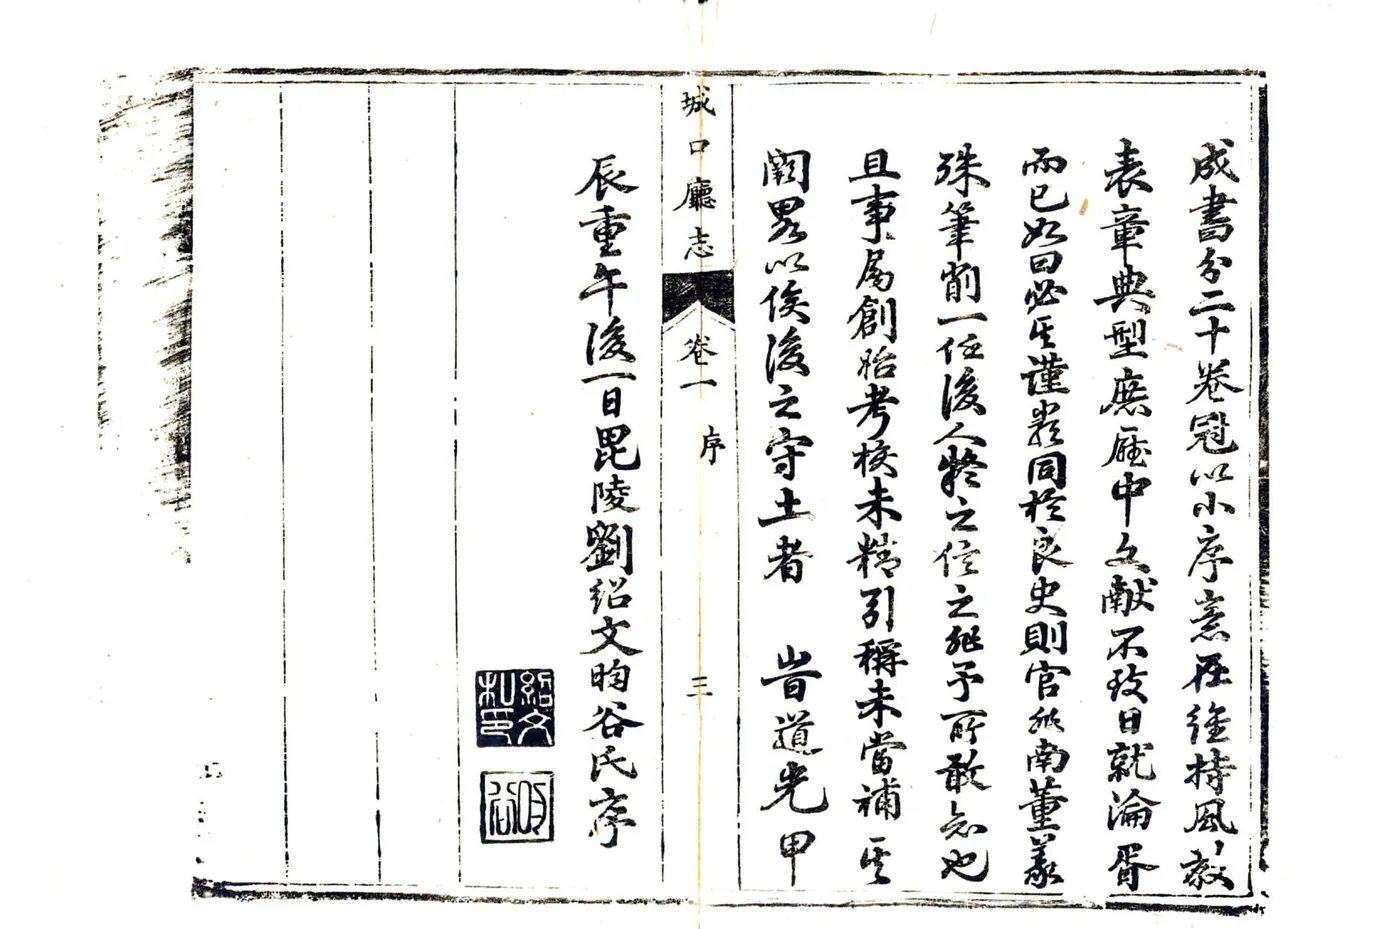 成書分二十卷冠以小序意在維持風教
表章典型庶廳中文献不致日就淪胥
而已如曰必其謹嚴同於良史則官非南董義
殊筆削一任後人疑之信之非予所敢知也
且事屬創始考核未精引稱未當補其
闕畧以俟後之守土者　時道光甲
城口廳志　卷一　序　三
辰重午後一日毘陵劉紹文昀谷氏序
紹文私印
昀谷